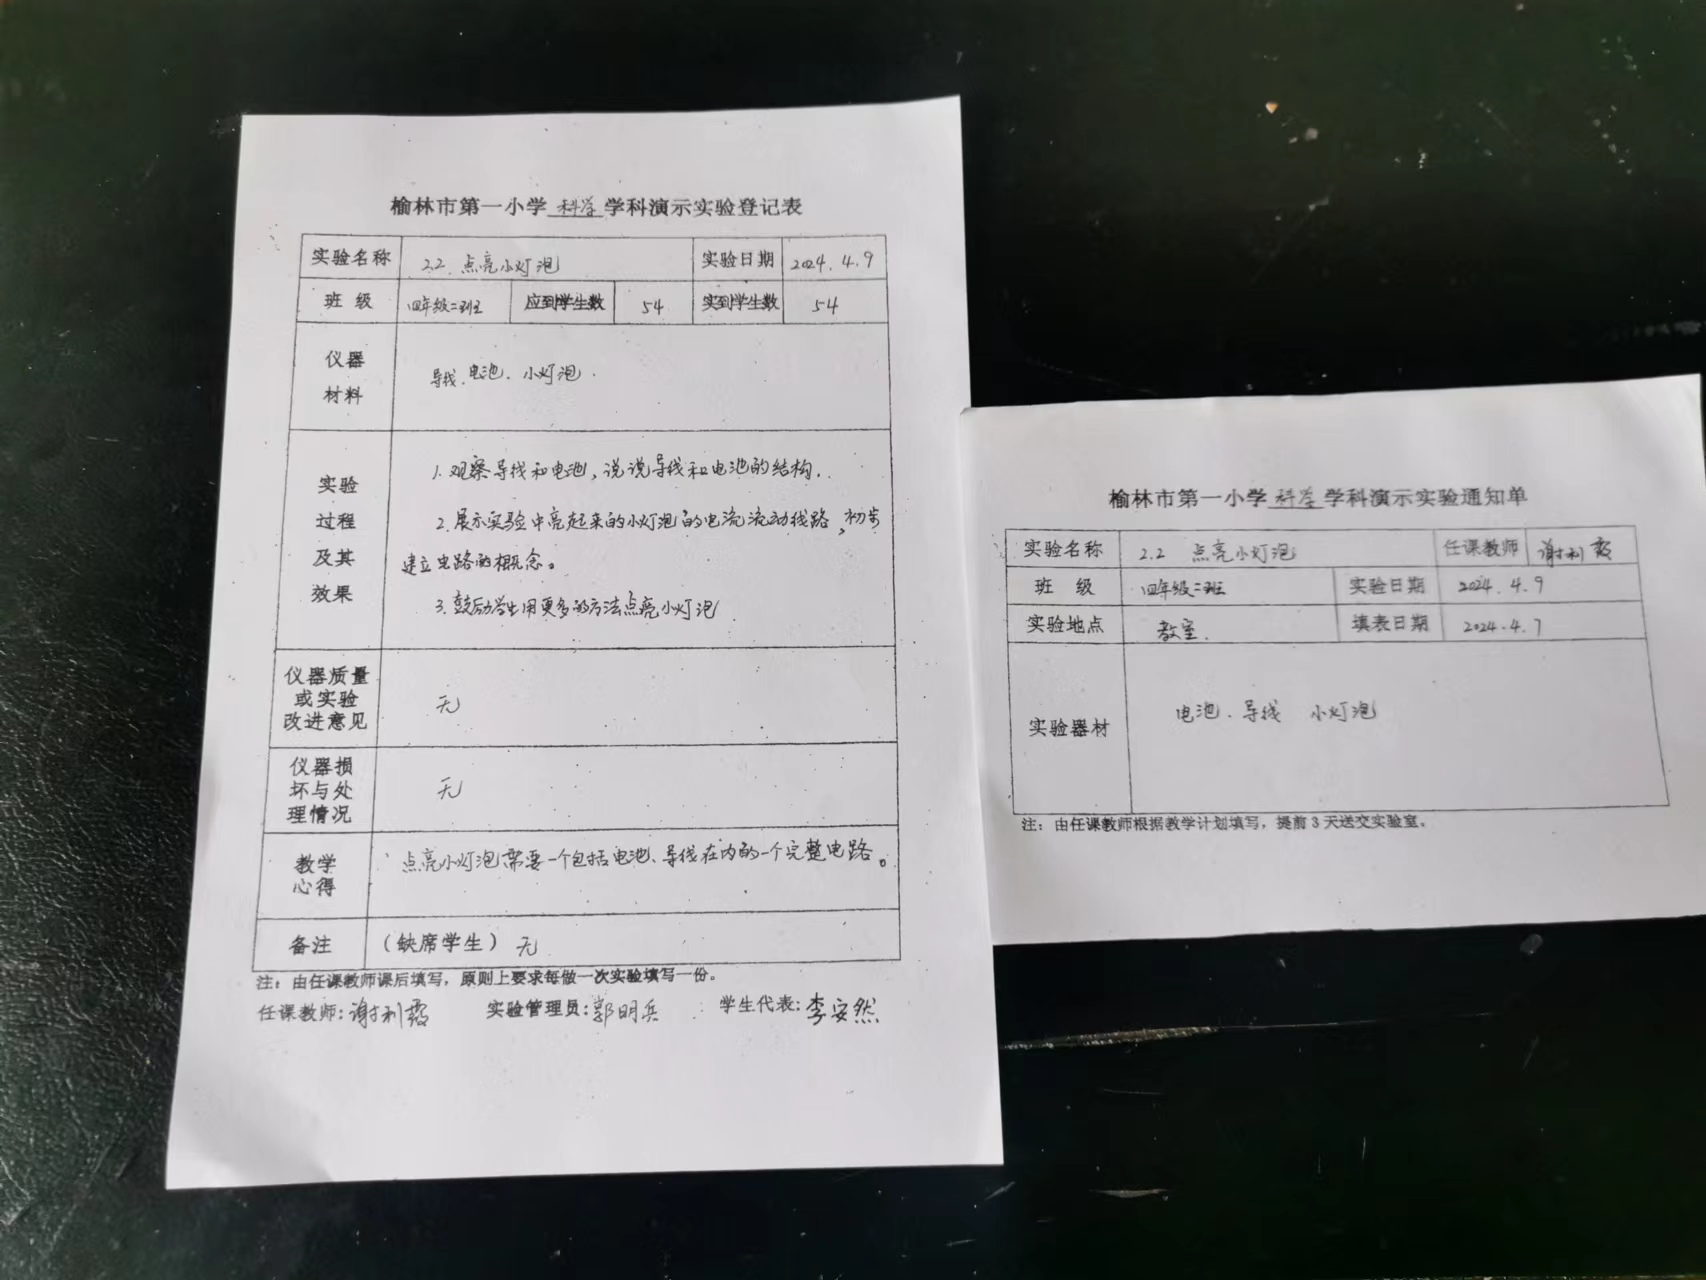 榆林市第一小学 科学 学科演示实验登记表
实验名称 2.2. 点亮小灯泡 实验日期 2024.4.9
班 级 四年级二班 应到学生数 54 实到学生数 54
仪器
材料
导线、电池、小灯泡.
实验
过程
及其
效果
1.观察导线和电池,说说导线和电池的结构.
2.展示实验中亮起来的小灯泡的电流流动线路,初步
建立电路的概念。
3.鼓励学生用更多的方法点亮小灯泡
仪器质量
或实验
改进意见
无
仪器损
坏与处
理情况
无
教学
心得
点亮小灯泡需要一个包括电池、导线在内的一个完整电路。
备注 (缺席学生) 无
注:由任课教师课后填写,原则上要求每做一次实验填写一份。
任课教师:谢利霞 实验管理员:郭明兵 学生代表:李安然
榆林市第一小学 科学 学科演示实验通知单
实验名称 2.2 点亮小灯泡 任课教师 谢利霞
班 级 四年级二班 实验日期 2024.4.9
实验地点 教室. 填表日期 2024.4.7
实验器材 电池、导线 小灯泡
注:由任课教师根据教学计划填写,提前3天送交实验室。